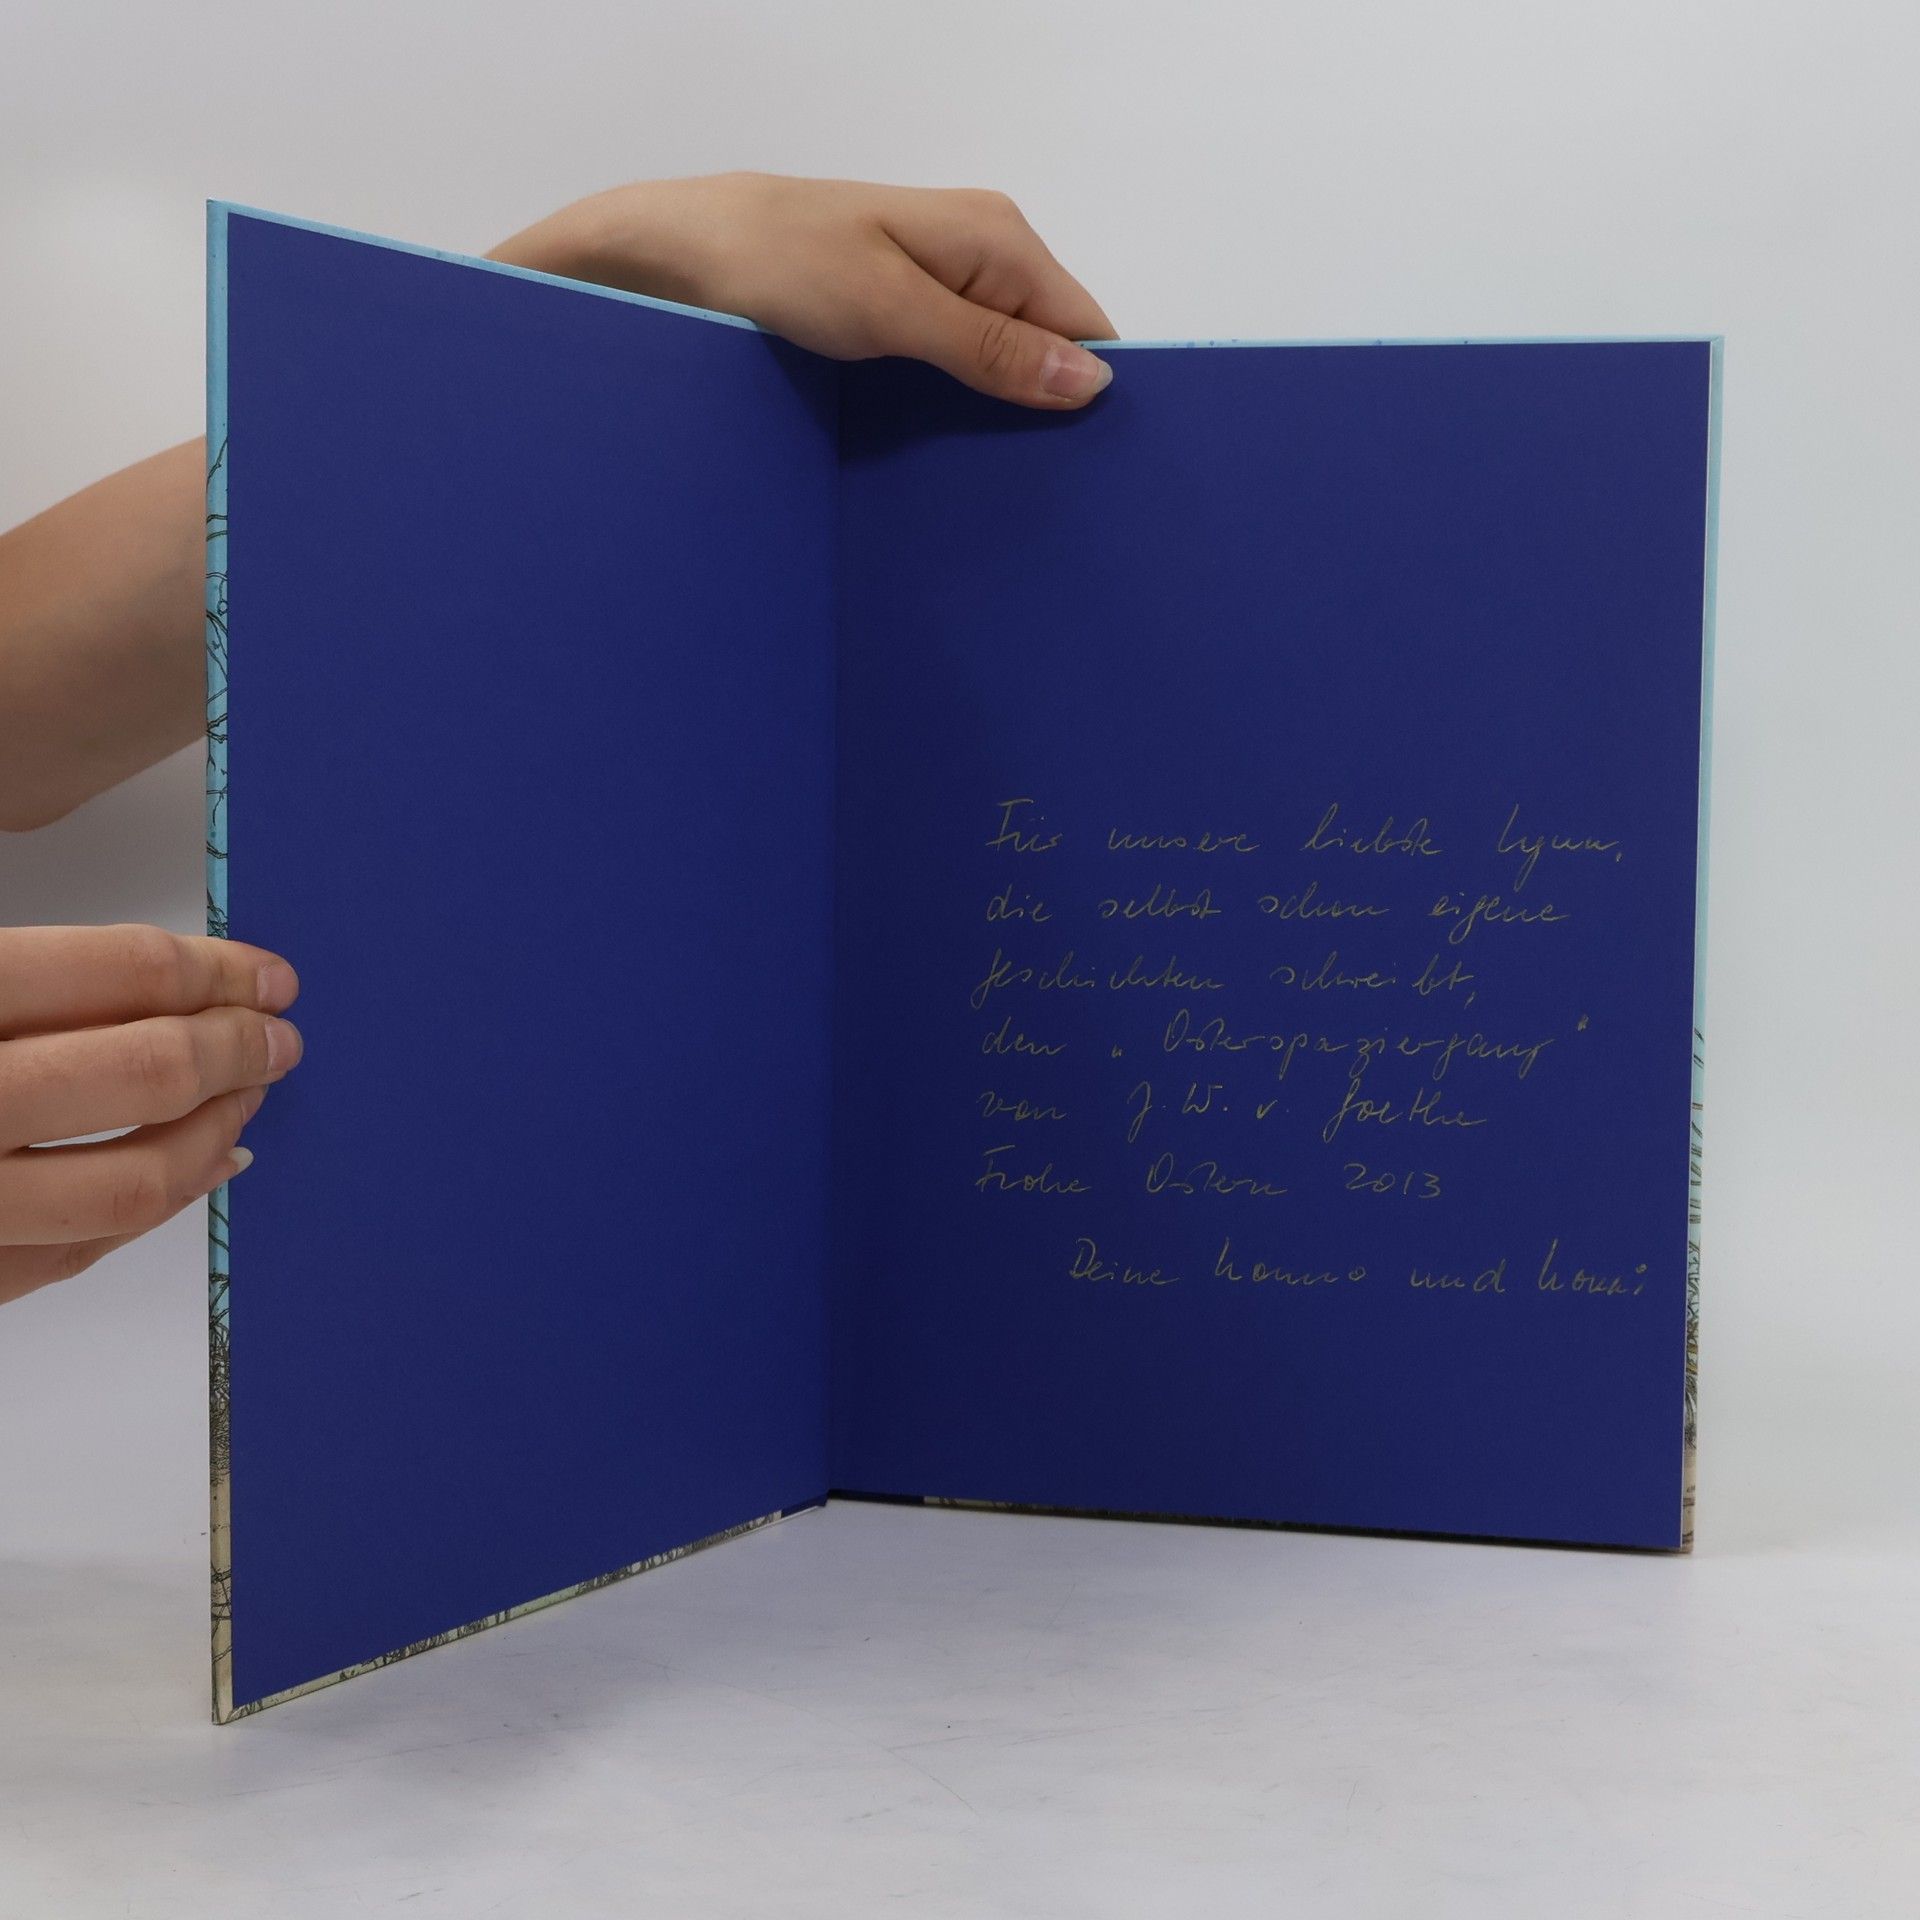 Für unsere liebste Lynn,
die selbst schon eigene
Geschichten schreibt,
den „Osterspaziergang"
von J. W. v. Goethe
Frohe Ostern 2013
Deine und